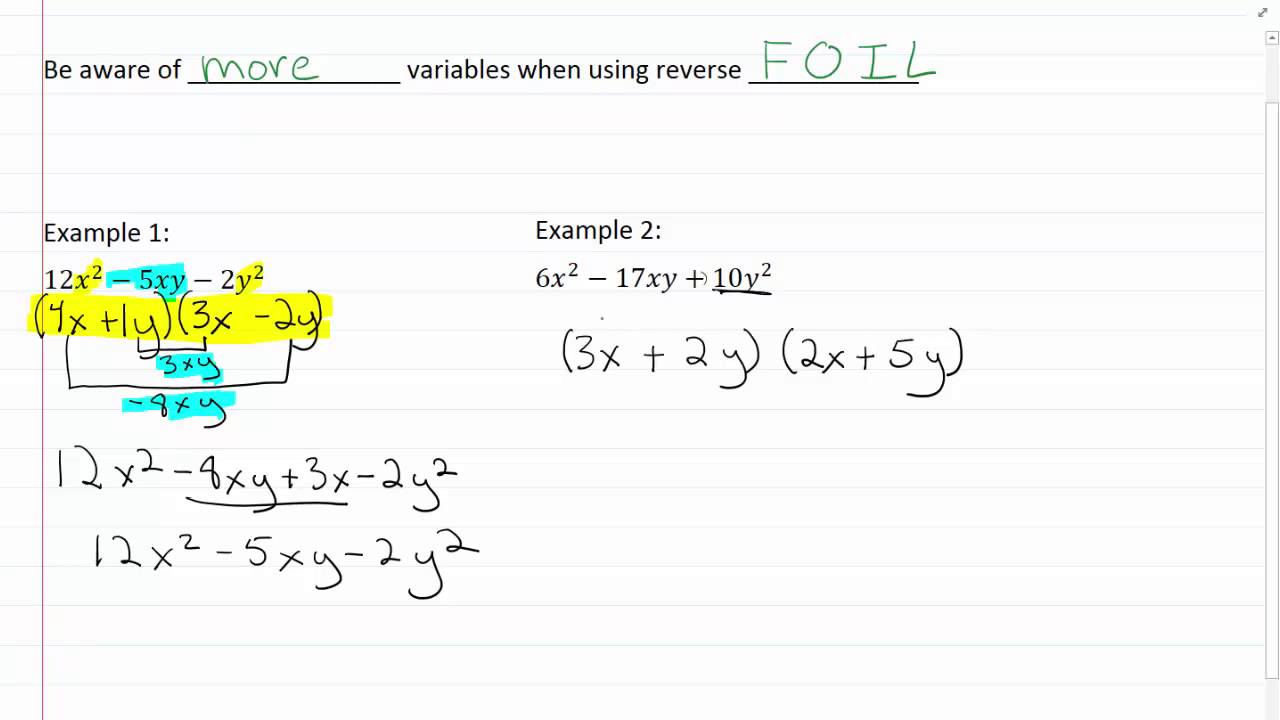 Be aware of more variables when using reverse FOIL
Example 1:
12x² − 5xy − 2y²
(4x + 1y)(3x - 2y)
3xy
-8xy
12x² - 8xy + 3x - 2y²
12x² - 5xy - 2y²
Example 2:
6x² − 17xy + 10y²
(3x + 2y)(2x + 5y)